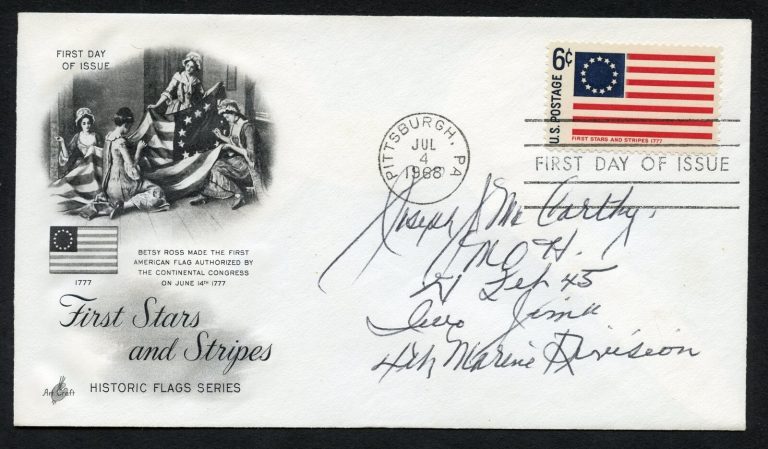 FIRST DAY
OF ISSUE
1777
BETSY ROSS MADE THE FIRST
AMERICAN FLAG AUTHORIZED BY
THE CONTINENTAL CONGRESS
ON JUNE 14TH 1777
First Stars
and Stripes
Art Craft
HISTORIC FLAGS SERIES
PITTSBURGH, PA
JUL
4
1968
U.S. POSTAGE
6¢
FIRST STARS AND STRIPES 1777
FIRST DAY OF ISSUE
Joseph J. McCarthy,
MOH
21 Feb 45
Iwo Jima
4th Marine Division